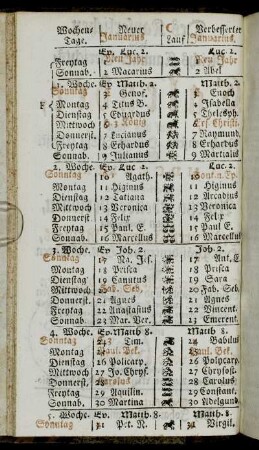 Wochen Neuer C Verbesserter
Tage. Januarius Lauf Januarius.
Ev. Luc. 2. Luc. 2.
Freytag Neu Jahr Neu Jahr
Sonnab. 2 Macarius 2 Abel
1. Woche. Ev. Matth. 2. Matth. 2.
Sonntag 3 Genof. 3 Enoch
Montag 4 Titus B. 4 Isabella
Dienstag 5 Eduardus 5 Thelesph.
Mittwoch 3 König Ersch. Christi
Donnerst. 7 Lucianus 7 Raymund.
Freytag 8 Erhardus 8 Erhardus
Sonnab. 9 Julianus 9 Martialis
2. Woche. Ev. Luc 2. Luc. 2.
Sonntag 10 Agath. 10
Montag 11 Higinus 11 Higinus
Dienstag 12 Satiana 12 Arcadius
Mittwoch 13 Veronica 13 Veronica
Donnerst. 14 Felix 14 Felix
Freytag 15 Paul. E. 15 Paul E.
Sonnab. 16 Marcellus 16 Marcellus
3. Woche. Ev. Joh. 2. Joh. 2.
Sonntag 17 17 Ant. E.
Montag 18 Prisca 18 Prisca
Dienstag 19 Canutus 19 Sara
Mittwoch Fab. Seb. 20 Fab. Seb.
Donnerst. 21 Agnes 21 Agnes
Freytag 22 Anastasius 22 Vincent.
Sonnab. 23 Mar. V. 23 Emerent.
4. Woche. Ev. Matth. 8. Matth. 8.
Sonntag 24 Tim. 24 Babilus
Montag Paul. Bek. Paul. Bek.
Dienstag 26 Policarp. 26 Polycarp.
Mittwoch 27 Jo. Chrys. 27 Chrysost.
Donnerst. 28 Carolus 28 Carolus
Freytag 29 Aquilin. 29 Constant.
Sonnab. 30 Martina 30 Adelgund.
5. Woche. Ev. Matth. 8. Matth. 8.
Sonntag 31 Pet. N. 31 Virgil.